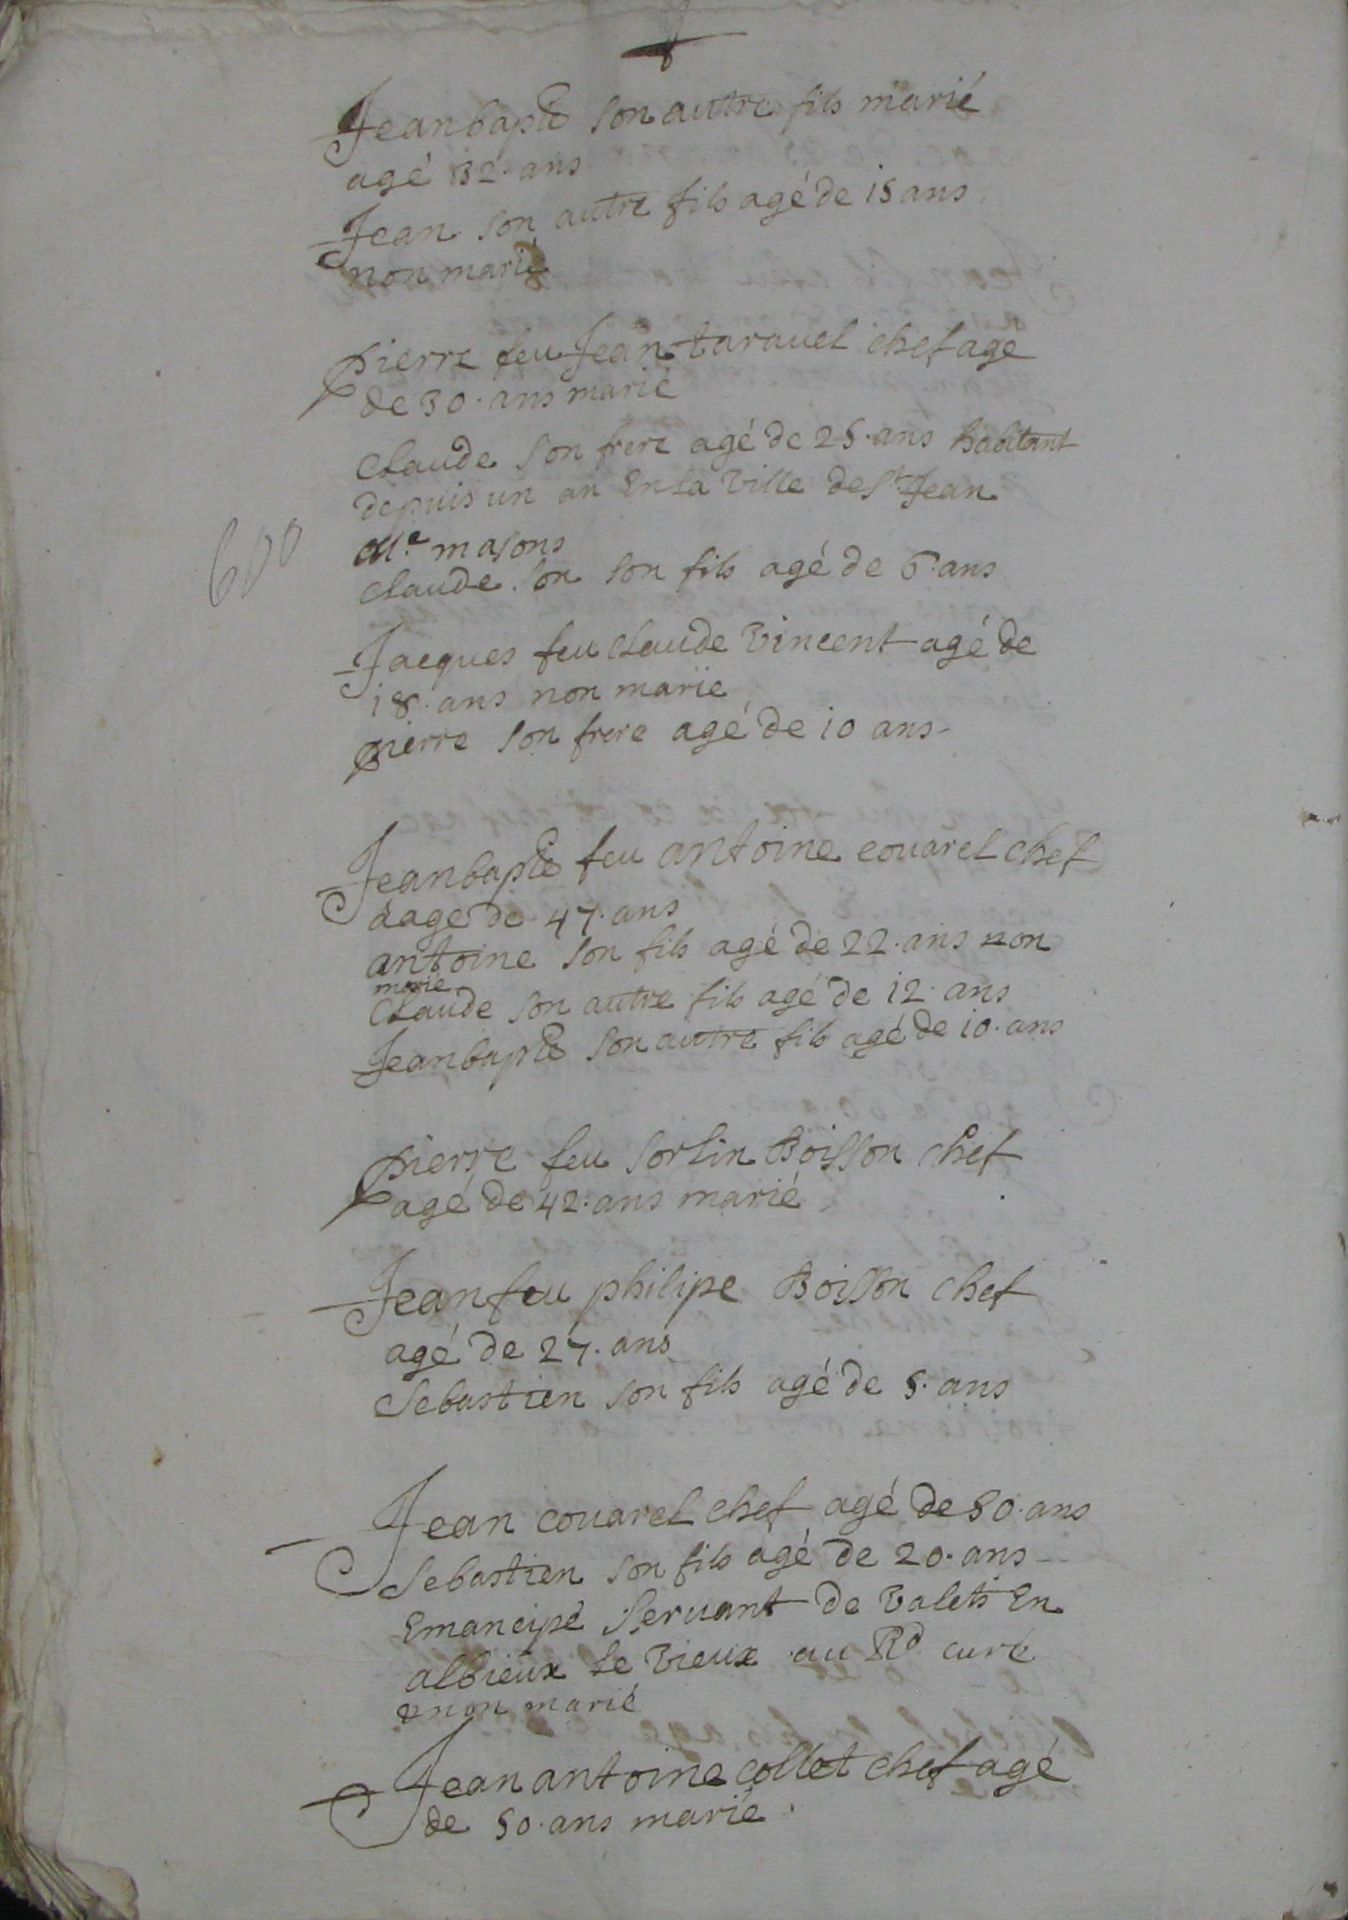 Jeanbapte son autre fils marié
agé 32. ans
Jean son autre fils agé de 15 ans
non marié
pierre feu Jean taravel chef agé
de 30. ans marié
Claude son frere agé de 25. ans habitant
depuis un an En la Ville de St Jean
Me masons
Claude son son fils agé de 6. ans
600
Jacques feu Claude Vincent agé de
18. ans non marie
pierre son frere agé de 10 ans
Jeanbapte feu antoine couarel chef
aage de 47. ans
antoine son fils agé de 22. ans non
marie
Claude son autre fils agé de 12. ans
Jeanbapte son autre fils agé de 10. ans
pierre feu sorlin Boisson chef
agé de 42. ans marié
Jean feu philipe Boisson chef
agé de 27. ans
Sebastien son fils agé de 5. ans
Jean couarel chef agé de 50. ans
Sebastien son fils agé de 20. ans
Emancipé Servant de Valets En
albieux le Vieux au Rd curé
& non marié
Jean antoine collet chef agé
de 50. ans marié